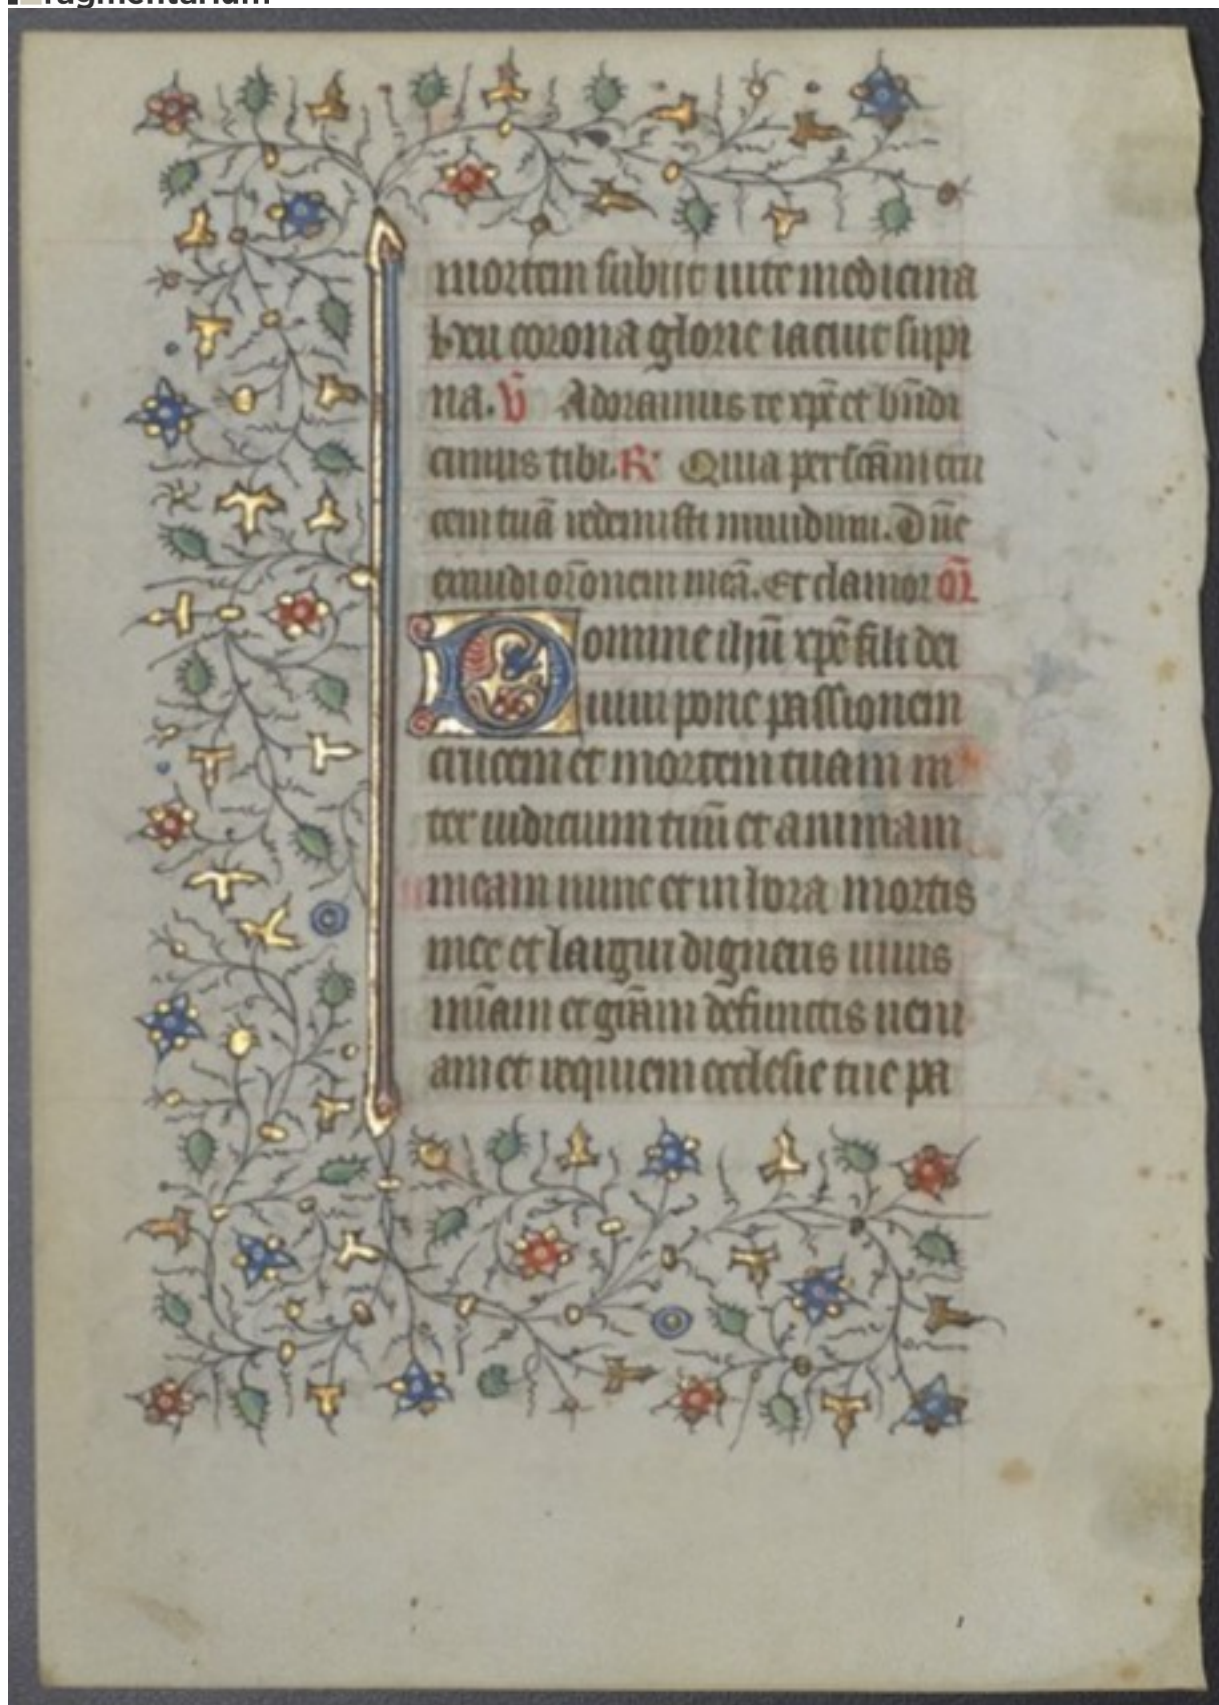 fragmentarium
mortem subijt uite medicina
hxii corona glorie iacuit supi
na. v̄ Adoramus te xp̄e et bn̄di
cimus tibi. R̄ Quia per sc̄am cru
cem tuā redemisti mundum. Dn̄e
exaudi or̄onem meā. Et clamor or̄
Domine ihū xpē fili dei
uiui pone passionem
crucem et mortem tuam in
ter iudicium tuū et animam
meam nunc et in hora mortis
mee et largiri digneris uiuis
mīam et grām defunctis ueni
am et requiem ecclesie tue pa